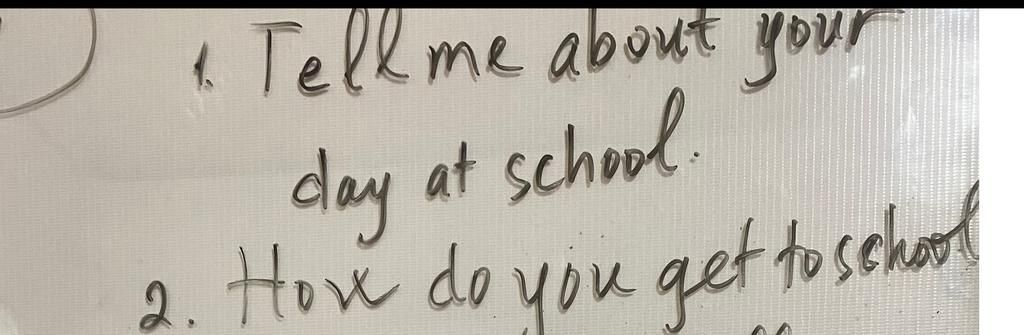 1. Tell me about your
day at school.
2. How do you get to school